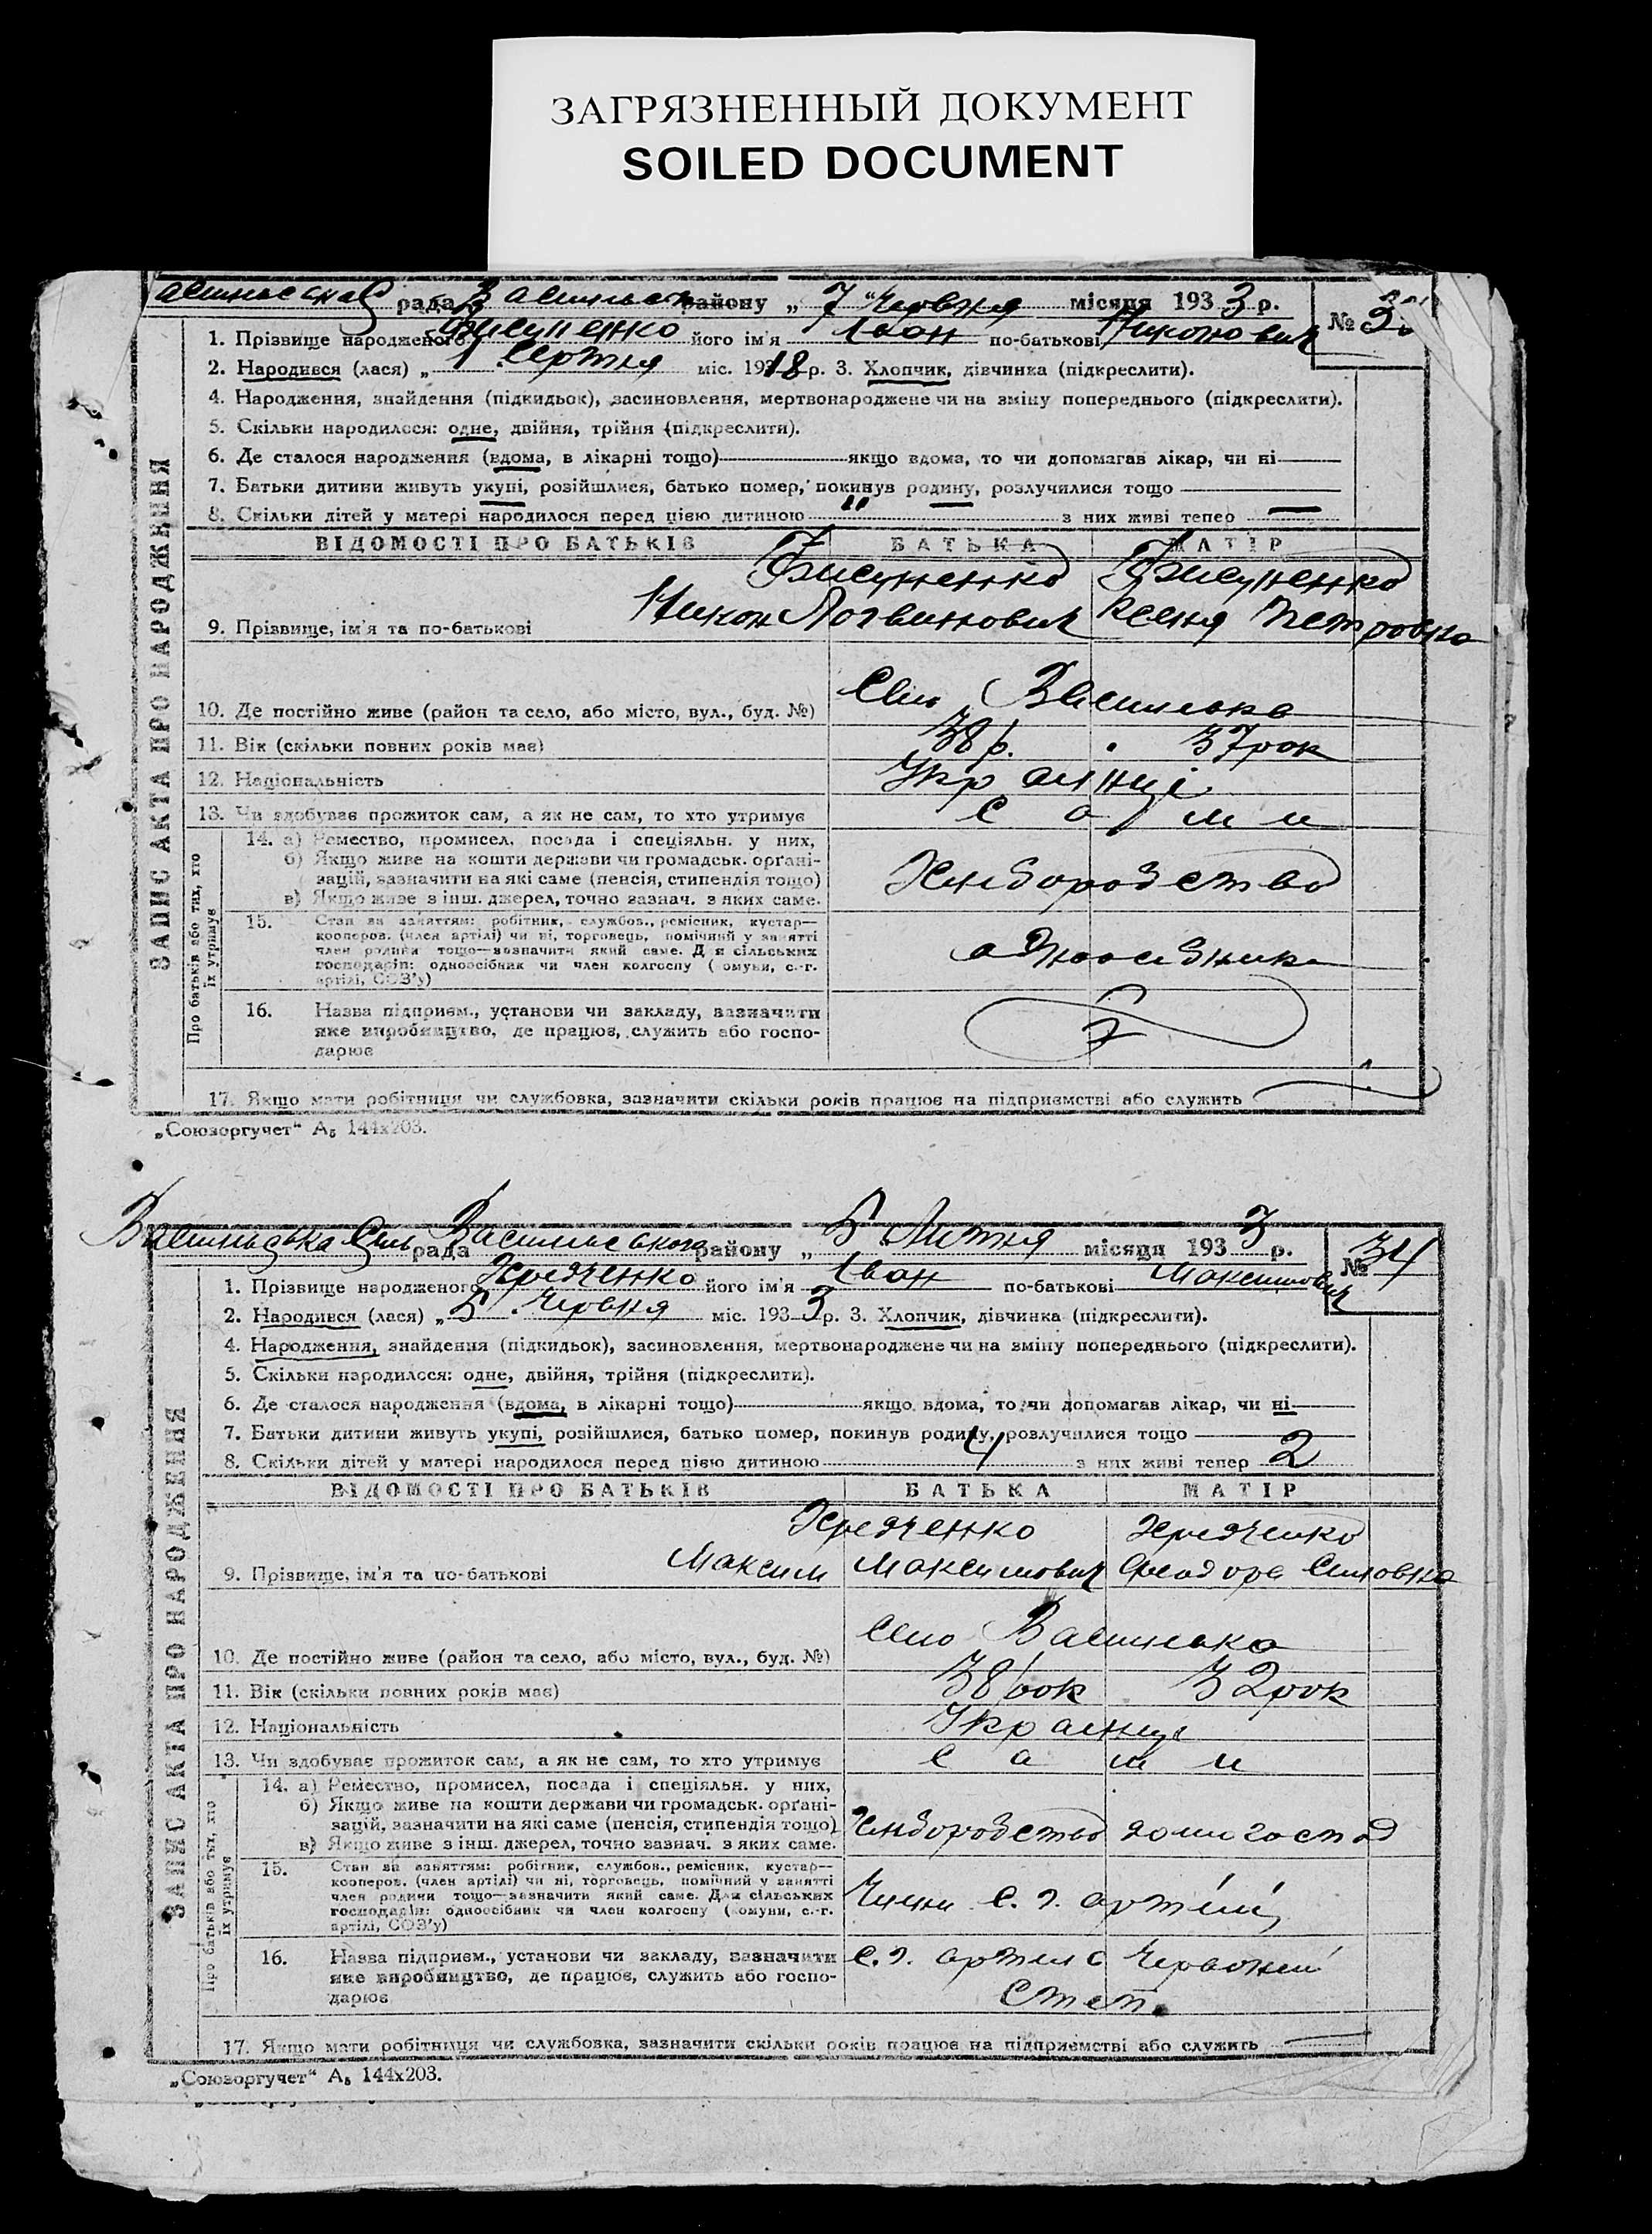 ЗАГРЯЗНЕННЫЙ ДОКУМЕНТ
SOILED DOCUMENT
рада району „ 7 “ Червня місяця 193 3 р.
№
1. Прізвище народженого його ім'я Іван по-батькові Никонович
2. Народився (лася) „ 1 Серпня міс. 1918 р. 3. Хлопчик, дівчинка (підкреслити).
4. Народження, знайдення (підкидьок), засиновлення, мертвонароджене чи на зміну попереднього (підкреслити).
5. Скільки народилося: одне, двійня, трійня (підкреслити).
6. Де сталося народження (вдома, в лікарні тощо) якщо вдома, то чи допомагав лікар, чи ні
7. Батьки дитини живуть укупі, розійшлися, батько помер, покинув родину, розлучилися тощо
8. Скільки дітей у матері народилося перед цією дитиною „ з них живі тепер —
ЗАПИС АКТА ПРО НАРОДЖЕННЯ
ВІДОМОСТІ ПРО БАТЬКІВ БАТЬКА МАТІР
Фисуненко Фисуненко
9. Прізвище, ім'я та по-батькові Никон Логвинович Ксеня Петровна
10. Де постійно живе (район та село, або місто, вул., буд. №) Село Василька
11. Вік (скільки повних років має) 38 р. 37 рок
12. Національність Українці
13. Чи здобуває прожиток сам, а як не сам, то хто утримує сами
Про батьків або тих, хто їх утримує
14. а) Ремество, промисел, посада і спеціяльн. у них,
б) Якщо живе на кошти держави чи громадськ. орґані-
зацій, зазначити на які саме (пенсія, стипендія тощо)
в) Якщо живе з інш. джерел, точно зазнач. з яких саме.
Хліборобство
15. Стан за заняттям: робітник, службов., ремісник, кустар—
кооперов. (член артілі) чи ні, торговець, помічний у занятті
член родини тощо—зазначити який саме. Для сільських
господарів: одноосібник чи член колгоспу (комуни, с.-г.
артілі, СОЗ'у)
одноосібник
16. Назва підприєм., установи чи закладу, зазначити
яке виробництво, де працює, служить або госпо-
дарює
17. Якщо мати робітниця чи службовка, зазначити скільки років працює на підприємстві або служить
„Союзоргучет“ А₅ 144х203.
рада Васильевского району „ 5 Липня місяця 193 3 р.
№ 34
1. Прізвище народженого його ім'я Іван по-батькові Максимович
2. Народився (лася) „ 5 Червня міс. 193 3 р. 3. Хлопчик, дівчинка (підкреслити).
4. Народження, знайдення (підкидьок), засиновлення, мертвонароджене чи на зміну попереднього (підкреслити).
5. Скільки народилося: одне, двійня, трійня (підкреслити).
6. Де сталося народження (вдома, в лікарні тощо) якщо вдома, то чи допомагав лікар, чи ні
7. Батьки дитини живуть укупі, розійшлися, батько помер, покинув родину, розлучилися тощо
8. Скільки дітей у матері народилося перед цією дитиною 4 з них живі тепер 2
ЗАПИС АКТА ПРО НАРОДЖЕННЯ
ВІДОМОСТІ ПРО БАТЬКІВ БАТЬКА МАТІР
9. Прізвище, ім'я та по-батькові Максим Максимович
10. Де постійно живе (район та село, або місто, вул., буд. №) Село Василька
11. Вік (скільки повних років має) 38 рок 32 рок
12. Національність Українці
13. Чи здобуває прожиток сам, а як не сам, то хто утримує сами
Про батьків або тих, хто їх утримує
14. а) Ремество, промисел, посада і спеціяльн. у них,
б) Якщо живе на кошти держави чи громадськ. орґані-
зацій, зазначити на які саме (пенсія, стипендія тощо)
в) Якщо живе з інш. джерел, точно зазнач. з яких саме.
Хліборобство домогоспод
15. Стан за заняттям: робітник, службов., ремісник, кустар—
кооперов. (член артілі) чи ні, торговець, помічний у занятті
член родини тощо—зазначити який саме. Для сільських
господарів: одноосібник чи член колгоспу (комуни, с.-г.
артілі, СОЗ'у)
Члени с. г. артілі
16. Назва підприєм., установи чи закладу, зазначити
яке виробництво, де працює, служить або госпо-
дарює
с. г. артил Червоний
Степ.
17. Якщо мати робітниця чи службовка, зазначити скільки років працює на підприємстві або служить
„Союзоргучет“ А₅ 144х203.